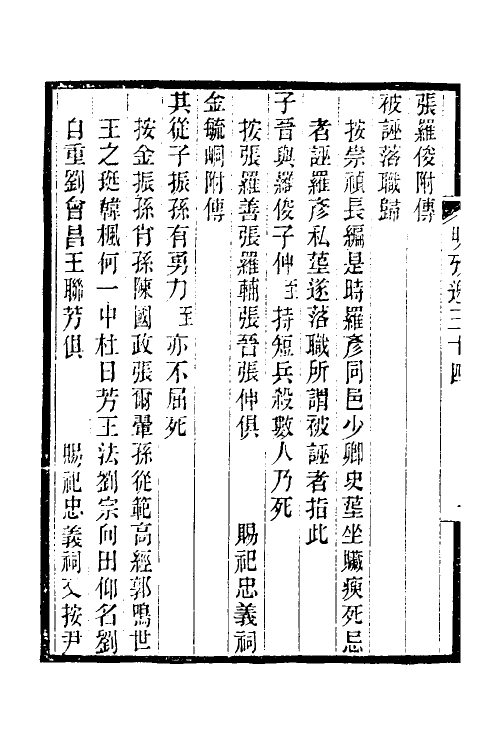 張羅俊附傳
被誣落職歸
按崇禎長編是時羅彥同邑少卿史𡎊坐贓瘐死忌
者誣羅彥私𡎊遂落職所謂被誣者指此
子晉與羅俊子伸至持短兵殺數人乃死
按張羅善張羅輔張晉張伸俱　賜祀忠義祠
金毓峒附傳
其從子振孫有勇力至亦不屈死
按金振孫肖孫陳國政張爾翬孫從範高經郭鳴世
王之珽韓楓何一中杜日芳王法劉宗向田仰名劉
自重劉會昌王聯芳俱　賜祀忠義祠又按尹